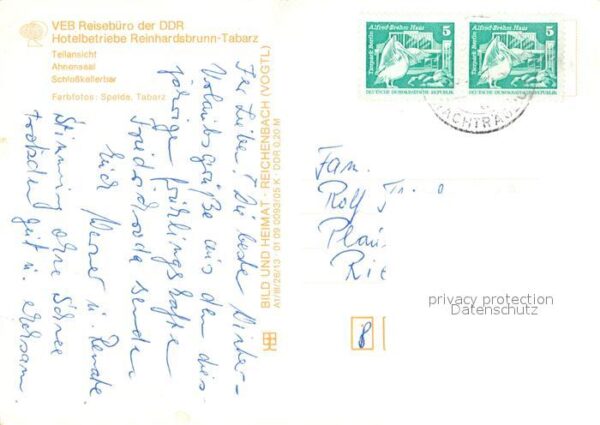 VEB Reisebüro der DDR
Hotelbetriebe Reinhardsbrunn-Tabarz
Teilansicht
Ahnensaal
Schloßkellerbar
Farbfotos: Spelda, Tabarz
Ihr Lieben! Die besten Winter-
urlaubsgrüße aus dem dies-
jährigen frühlingshaften
Friedrichroda senden
Euch Werner u. Renate.
Stimmung ohne Schnee
trotzdem gut u. erholsam.
BILD UND HEIMAT · REICHENBACH (VOGTL)
A1/III/26/13 01 09 0093/05 K · DDR 0,20 M
Tierpark Berlin
Alfred-Brehm-Haus
5
DEUTSCHE DEMOKRATISCHE REPUBLIK
Tierpark Berlin
Alfred-Brehm-Haus
5
DEUTSCHE DEMOKRATISCHE REPUBLIK
Fam.
Rolf
Plau
Rie
8
privacy protection
Datenschutz